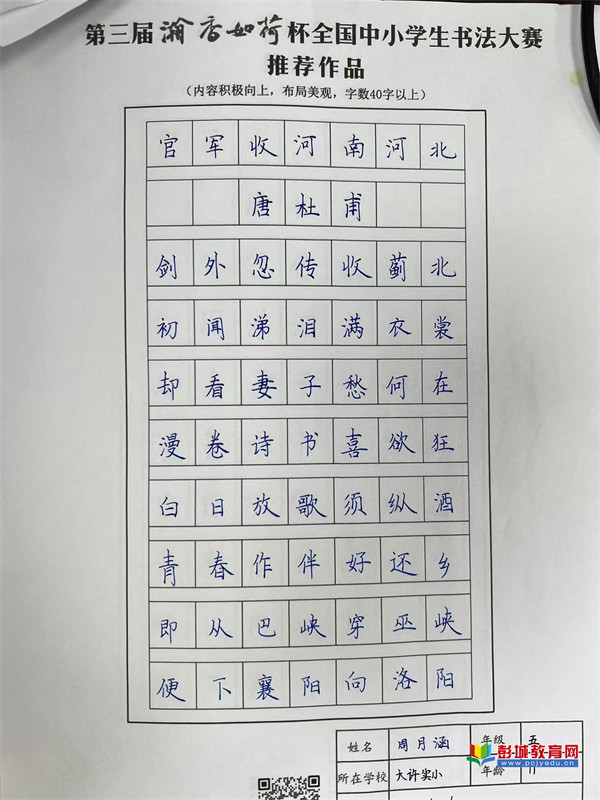 第三届瀚香如荷杯全国中小学生书法大赛
推荐作品
（内容积极向上，布局美观，字数40字以上）
官军收河南河北
唐杜甫
剑外忽传收蓟北
初闻涕泪满衣裳
却看妻子愁何在
漫卷诗书喜欲狂
白日放歌须纵酒
青春作伴好还乡
即从巴峡穿巫峡
便下襄阳向洛阳
姓名 周月涵 年级 五
所在学校 大许实小 年龄 11
彭城教育网
www.pcjyedu.cn